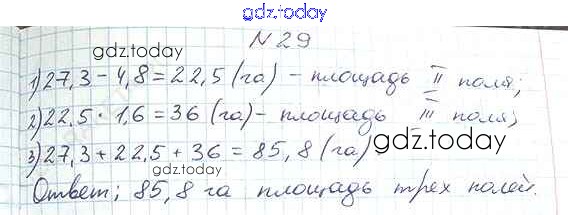 gdz.today
N 29
gdz.today
1) 27,3 - 4,8 = 22,5 (га) - площадь II поля;
2) 22,5 · 1,6 = 36 (га) - площадь III поля;
3) 27,3 + 22,5 + 36 = 85,8 (га)
gdz.today
gdz.today
Ответ; 85,8 га площадь трех полей.